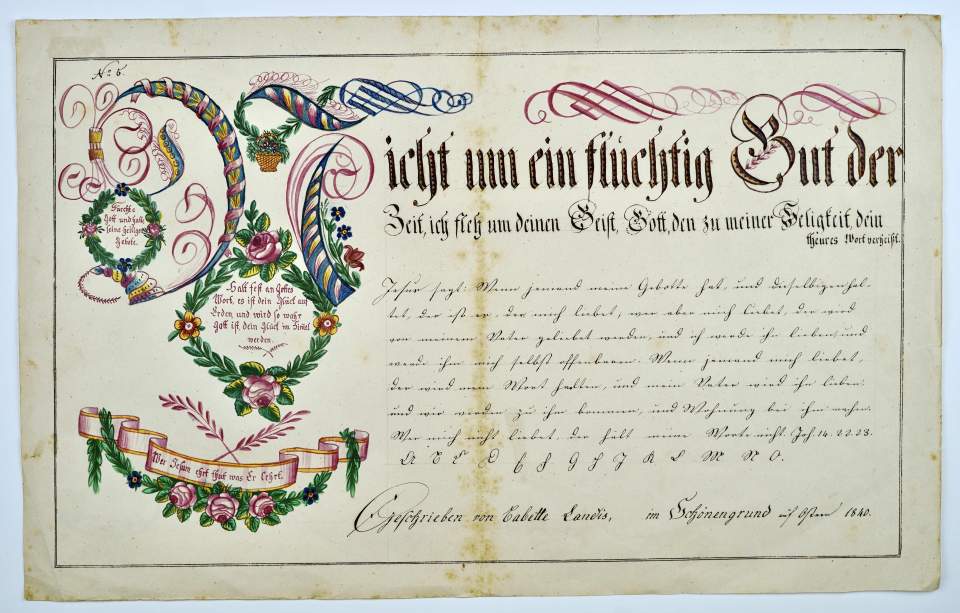 No 6.
Nicht um ein flüchtig Gut der
Zeit, ich fleh um deinen Geist, Gott, den zu meiner Seligkeit, dein
theures Wort verheißt.
Fürchte
Gott und halte
seine heiligen
Gebote.
Halt fest an Gottes
Wort, es ist dein Glück auf
Erden, und wird so wahr
Gott ist, dein Glück im Himel
werden.
Wer Jesum ehrt thut was Er lehrt.
Jesus sagt: Wenn jemand meine Gebotte hat, und dieselbigen hal-
tet, der ist es, der mich liebet, wer aber mich liebet, der wird
von meinem Vater geliebet werden, und ich werde ihn lieben, und
werde ihm mich selbst offenbaren. Wenn jemand mich liebet,
der wird mein Wort halten, und mein Vater wird ihn lieben,
und wir werden zu ihm kommen, und Wohnung bei ihm mach.
Wer mich nicht liebet, der hält meine Worte nicht. Joh. 14. 22. 23.
A B C D E F G H J K L M N O.
Geschrieben von Babette Landis, im Schönengrund auf Ostern 1840.